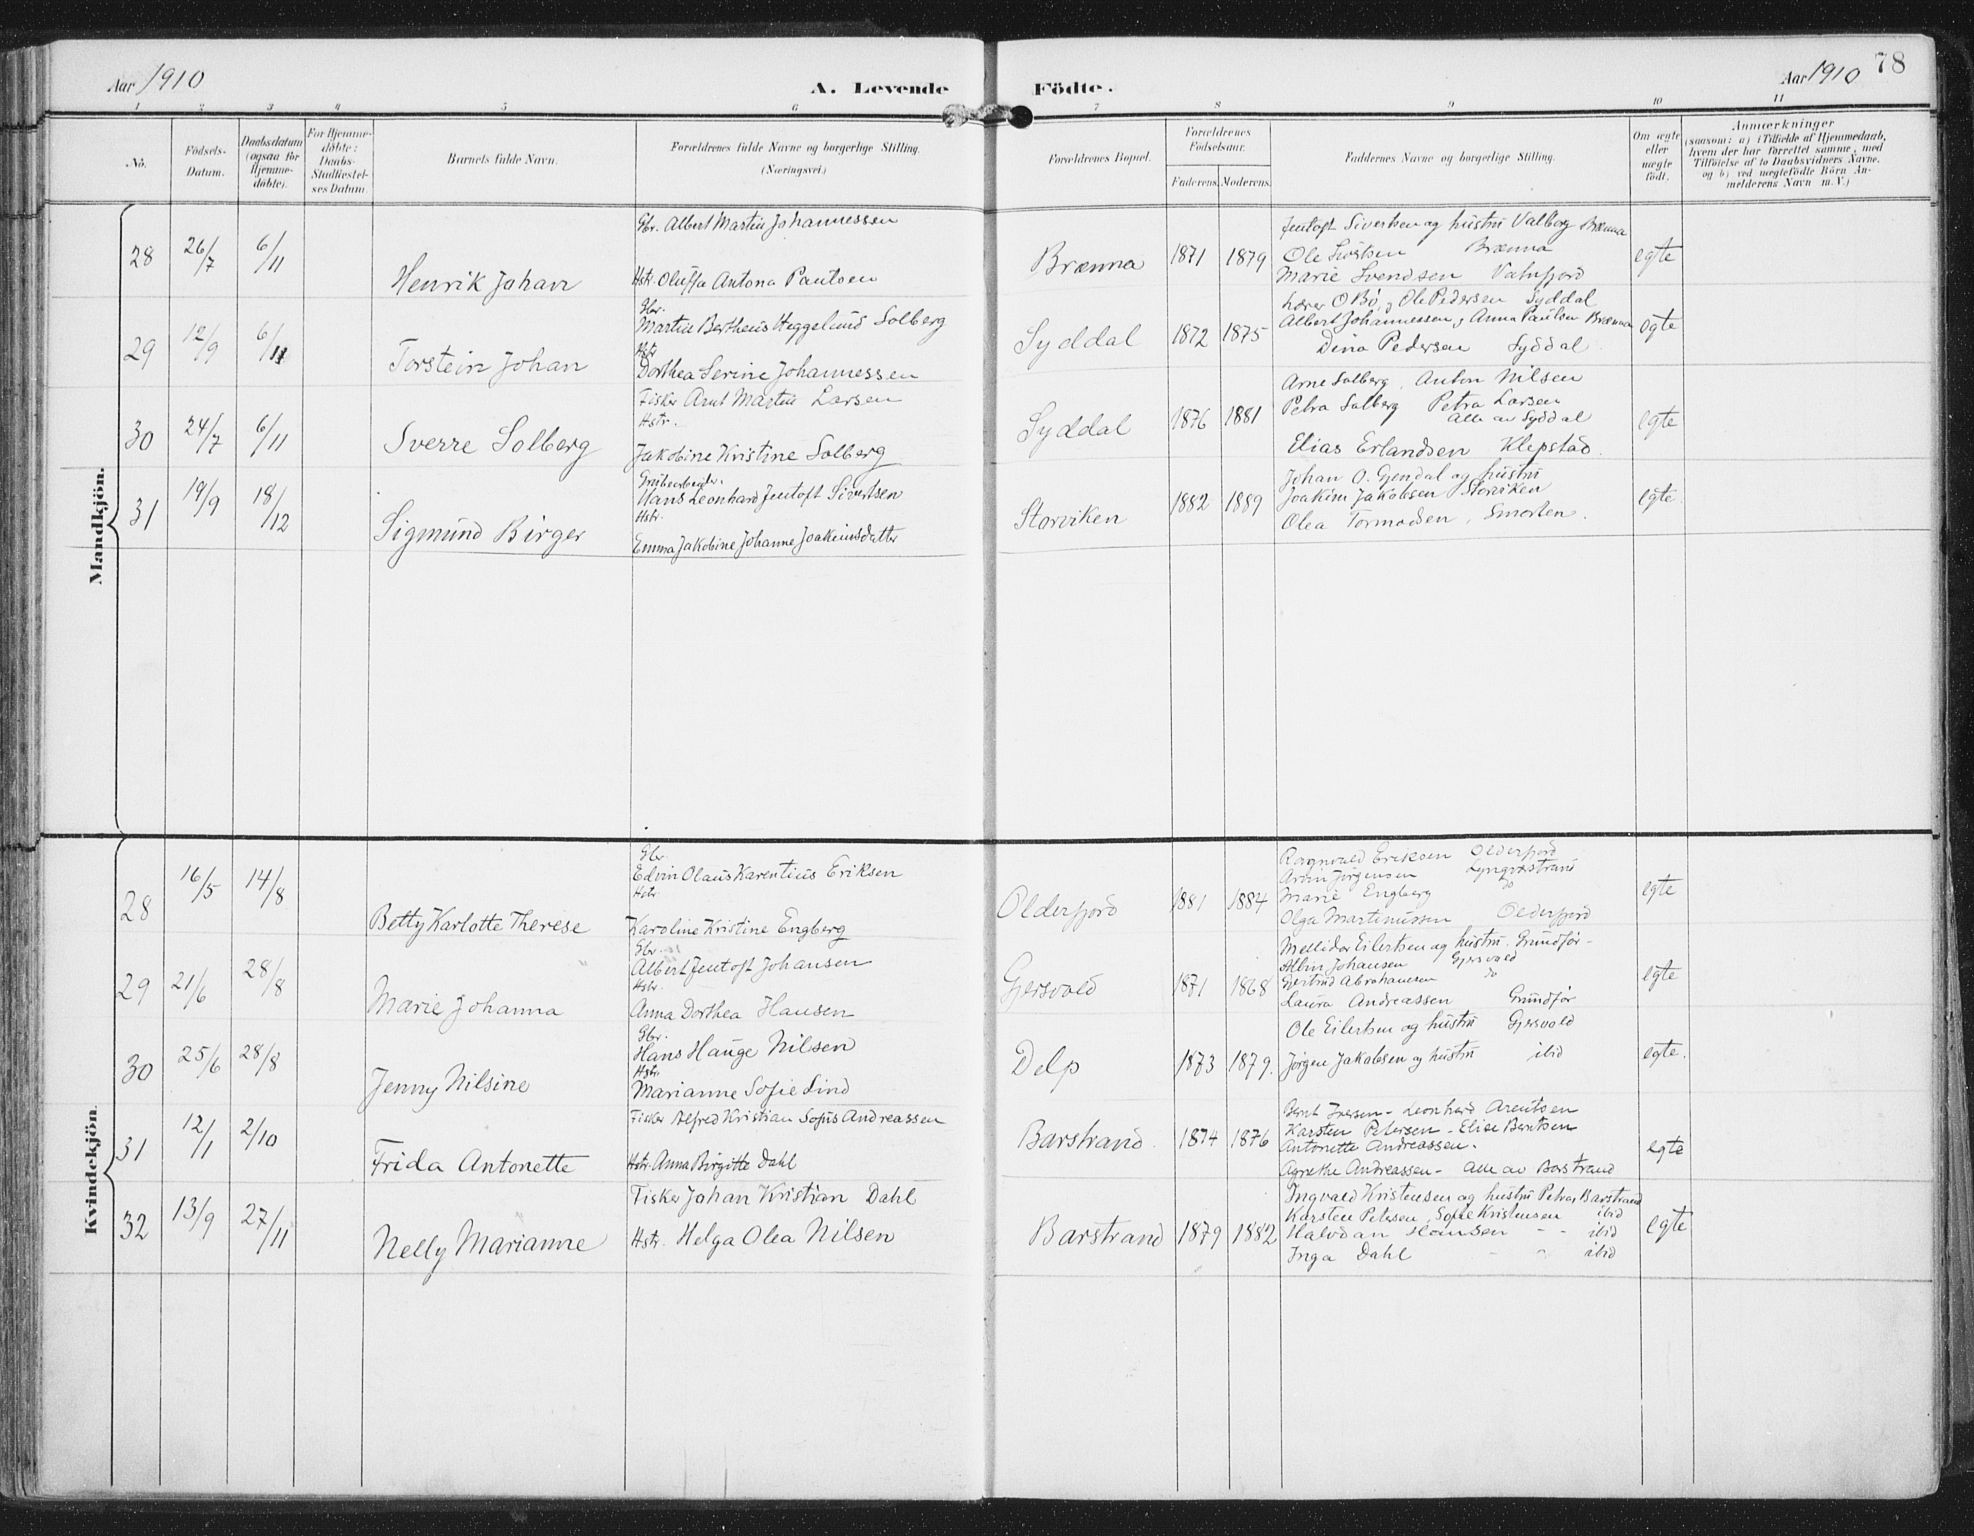 Aar 1910
A. Levende Födte.
Aar 1910 78
1 2 3 4 5 6 7 8 9 10 11
No.
Födsels-Datum.
Daabsdatum (ogsaa for Hjemme-döbte).
For Hjemme-döbte: Daabs-Stadfæstel-ses Datum
Barnets fulde Navn.
Forældrenes fulde Navne og borgerlige Stilling. (Næringsvei.)
Forældrenes Bopæl.
Forældrenes Födselsaar.
Faderens. Moderens.
Faddernes Navne og borgerlige Stilling.
Om ægte eller uægte födt.
Anmærkninger
(saasom: a) i Tilfælde af Hjemmedaab,
hvem der har forrettet samme, med
Tilföielse af to Daabsvidners Navne.
og b) ved uægtefödte Börn An-
melderens Navn m. V.)
Mandkjön.
28 26/7 6/11 Henrik Johan
Gbr. Albert Martin Johannessen
Hstr. Oluffa Antona Paulsen
Brænna 1871 1879
Jentoft Sivertsen og hustru Valborg Brænna
Ole Brænna
Marie Svendsen Vatnfjord
egte
29 12/9 6/11 Torstein Johan
Gbr.
Martin Bertheus Heggelund Solberg
Hstr
Dorthea Serine Johannessen
Syddal 1872 1875
Lærer O Bö, Ole Pedersen Syddal
Albert Johannessen, Anna Paulsen Brænna
Dina Pedersen Syddal
egte
30 24/7 6/11 Sverre Solberg
Fisker Arnt Martin Larsen
Hstr.
Jakobine Kristine Solberg
Syddal 1876 1881
Arne Solberg, Anton Nilsen
Petra Solberg Petra Larsen
Alle av Syddal
Elias Erlandsen Klepstad.
egte
31 19/9 18/12 Sigmund Birger
Grubearbeider.
Hans Leonhard Jentoft Sivertsen
Hstr.
Emma Jakobine Johanne Joakimsdatter
Storviken 1882 1889
Johan O. Gjendal og hustru
Joakim Jakobsen Storviken
Olea Tormodsen, Smorten.
egte.
Kvindekjön.
28 16/5 14/8 Betty Karlotte Therese
Gbr.
Edvin Olaus Karentius Eriksen
Hstr
Karoline Kristine Engberg
Olderfjord 1881 1884
Ragnvald Eriksen Olderfjord
Arvin Jörgensen Lyngværstrand
Marie Engberg do
Olga Martinussen Olderfjord
egte
29 21/6 28/8 Marie Johanna
Gbr.
Albert Jentoft Johansen
Hstr.
Anna Dorthea Hansen
Gjersvold 1871 1868
Mellidor Eilertsen og hustru. Grundför-
Albin Johansen Gjersvold
Gjertrud Abrahamsen do
Laura Andreassen Grundför
egte
30 25/6 28/8 Jenny Nilsine
Gbr.
Hans Hauge Nilsen
Hstr.
Marianne Sofie Lind
Delp 1873 1879.
Ole Eilertsen og hustru Gjersvold
Jörgen Jakobsen og hustru ibid
egte.
31 12/1 2/10 Frida Antonette
Fisker Alfred Kristian Sofus Andreassen
Hstr. Anna Birgitte Dahl
Barstrand. 1874 1876
Bernt Iversen - Leonhard Arentsen
Karsten Petersen - Elise Bentsen
Antonette Andreassen.
Agnethe Andreassen - Alle av Barstrand
egte
32 13/9 27/11 Nelly Marianne
Fisker Johan Kristian Dahl
Hstr. Helga Olea Nilsen
Barstrand 1879 1882
Ingvald Kristensen og hustru Petra, Barstrand
Karsten Petersen, Sofie Kristensen ibid
Halvdan Hansen - - ibid
Inga Dahl - " ibid
egte